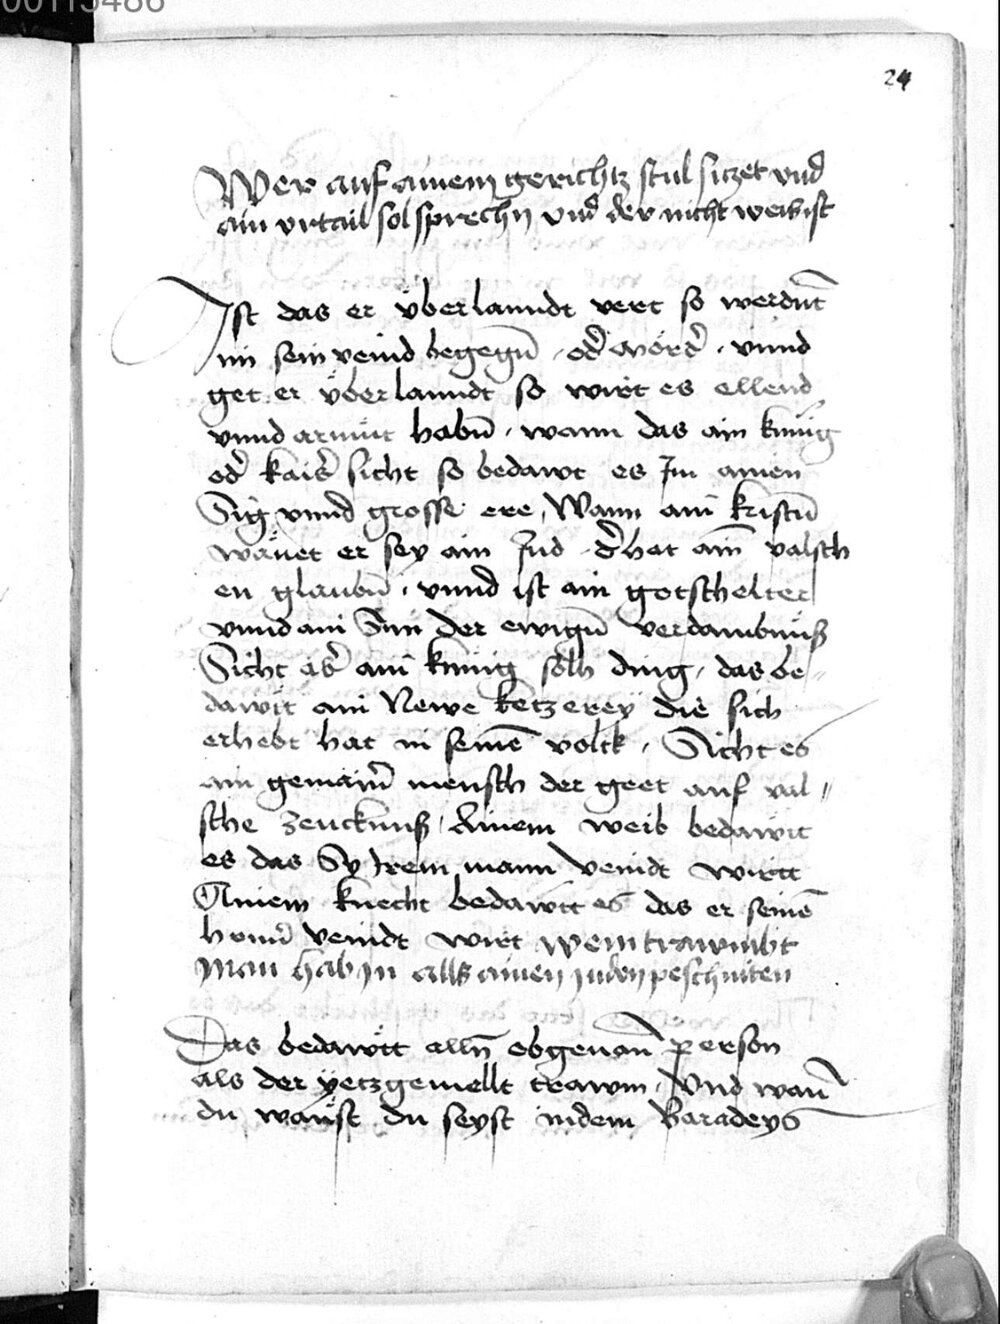 00115486
24
Wer auf ainem gerichtz stul siczet vnd
ain vrtail sol sprechn̄ vnd der nicht weis ist
Ist das er vber lanndt vert so werdn̄t
im sein veind begegn̄ . od̄ mörd̄ . vnnd
get er vber lanndt so wirt es ellend
vnnd armüt habn̄ . wann das ain künig
od̄ kais̄ sicht so bedawt es Im ainen
Sig vnnd grosse ere , Wann ain kristn̄
wänet er sey ain Jud . d̄ hat ain valsch
en glaubn̄ . vnnd ist ain gotschelter
vnnd ain Sun der ewign̄ verdambnüß
Sicht ab̄ ain künig solh ding , das be„
dawtt ain Newe ketzerey die sich
erhebt hat in seinē volck . Sicht es
ain gemain̄ mensch der geet auf val„
sche zeucknuß . Ainem weib bedawtt
es das Sy Irem mann veindt wirtt
Ainem knecht bedawtt es das er seinē
herrn̄ veindt wirt wem trawmbt
Man hab in alls ainen juden peschniten
Das bedawtt alln̄ obgenan̄ person
als der yetzgemellt trawm . Vnd wan̄
du wänst du seyst indem Baradeys